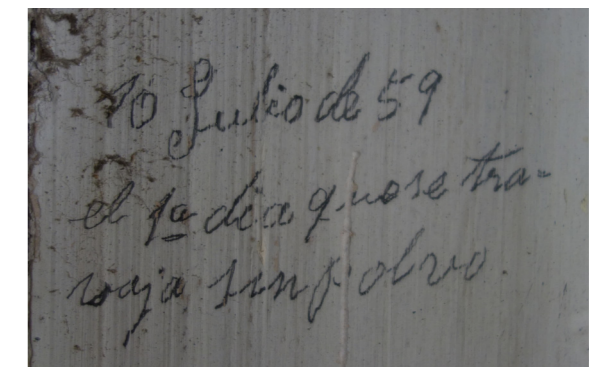 10 Julio de 59
el 1º dia que se tra-
vaja sin polvo.